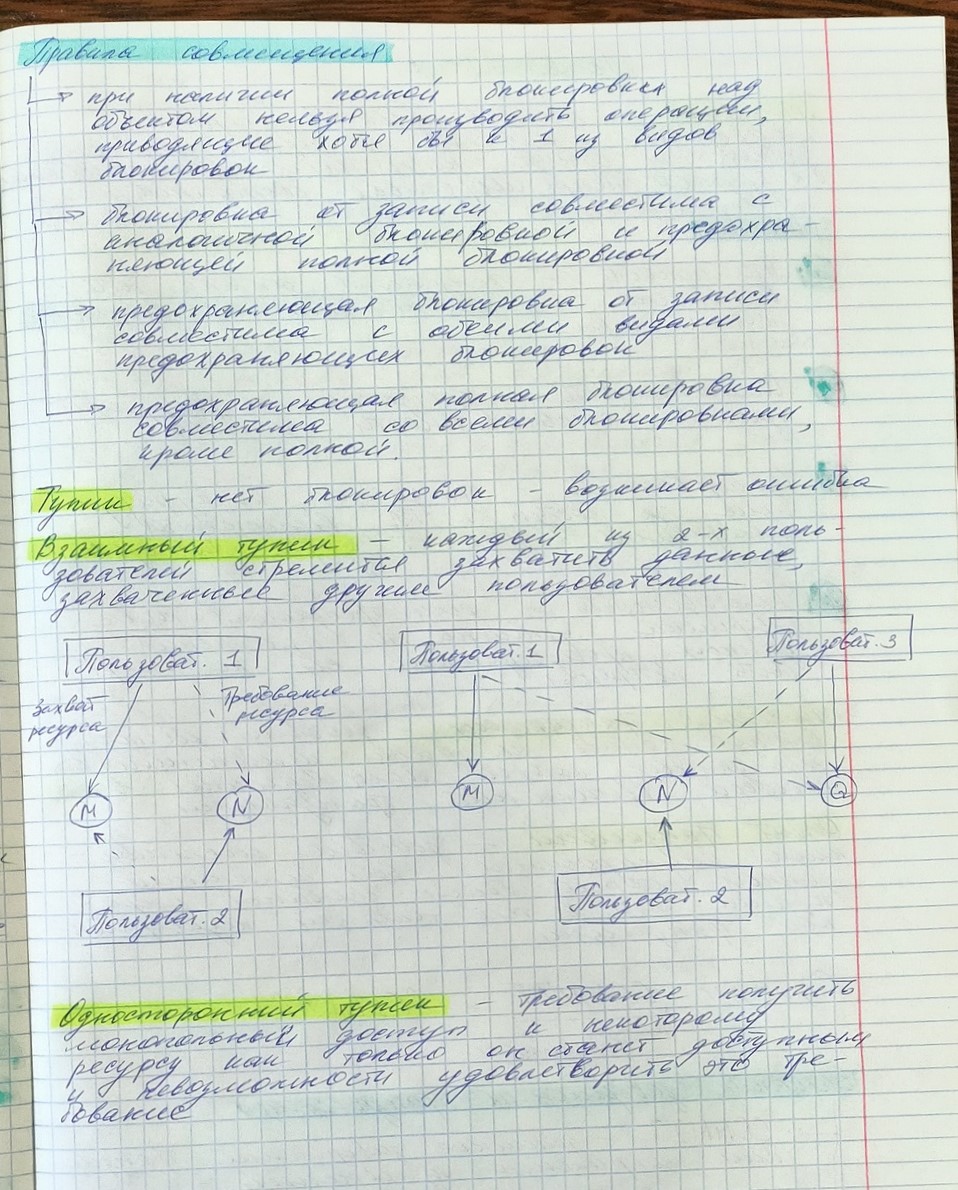 Правила совмещения
при наличии полной блокировки над
объектом нельзя производить операции,
приводящие хотя бы к 1 из видов
блокировок
блокировка от записи совместима с
аналогичной блокировкой и предохра-
няющей полной блокировкой
предохраняющая блокировка от записи
совместима с обеими видами
предохраняющих блокировок
предохраняющая полная блокировка
совместима со всеми блокировками,
кроме полной.
Тупик - нет блокировок - возникает ошибка
Взаимный тупик - каждый из 2-х поль-
зователей стремится захватить данные,
захваченные другим пользователем
Пользоват. 1
Пользоват. 1
Пользоват. 3
Захват
ресурса
Требование
ресурса
M
N
M
N
Q
Пользоват. 2
Пользоват. 2
Односторонний тупик - требование получить
монопольный доступ к некоторому
ресурсу как только он станет доступным
и невозможности удовлетворить это тре-
бование